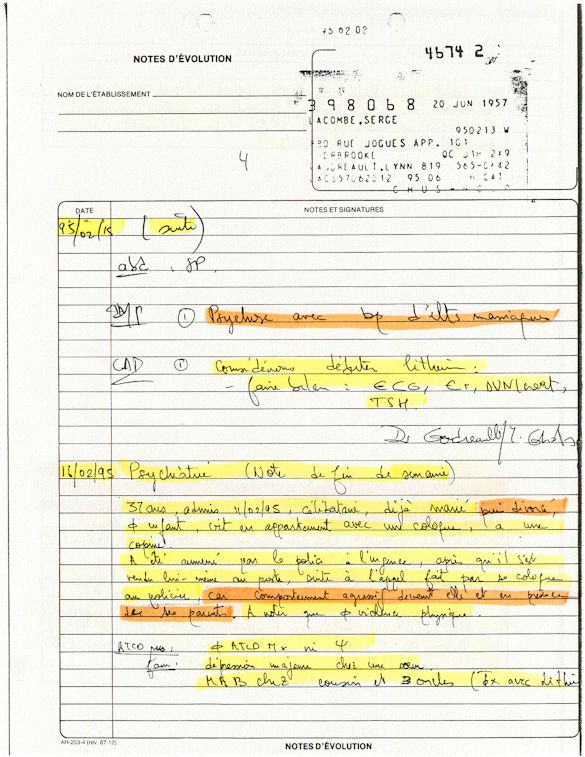 95 02 02
4674 2
NOTES D'ÉVOLUTION
NOM DE L'ÉTABLISSEMENT
398068 20 JUN 1957
LACOMBE, SERGE
950213 W
RUE JOGUES APP. 101
QC J1H 2X9
LYNN 819
95 06
4
DATE NOTES ET SIGNATURES
95/02/15 (suite)
abd : SP.
① Psychose avec bp d'élts maniaques
CAD ① Considérons débuter lithium.
- faire bilan : ECG, E+, BUN/creat,
TSH.
Dr
16/02/95 Psychiatrie (Note de fin de semaine)
37 ans, admis 11/02/95, célibataire, déjà marié puis divorcé,
φ enfant, vit en appartement avec un cologue, a une
copine.
A été amené par la police à l'urgence, après qu'il s'est
rendu lui-même au poste, suite à l'appel fait par sa cologue
au policier, car comportement agressif devant elle et en présence
de ses parents. A noter que φ violence physique.
ATCD pers: φ ATCD Mx ni ψ
fam: dépression majeure chez une soeur
MAB chez cousin et 3 oncles (tx avec lithium
AH-253-4 (rev. 87-12)
NOTES D'ÉVOLUTION